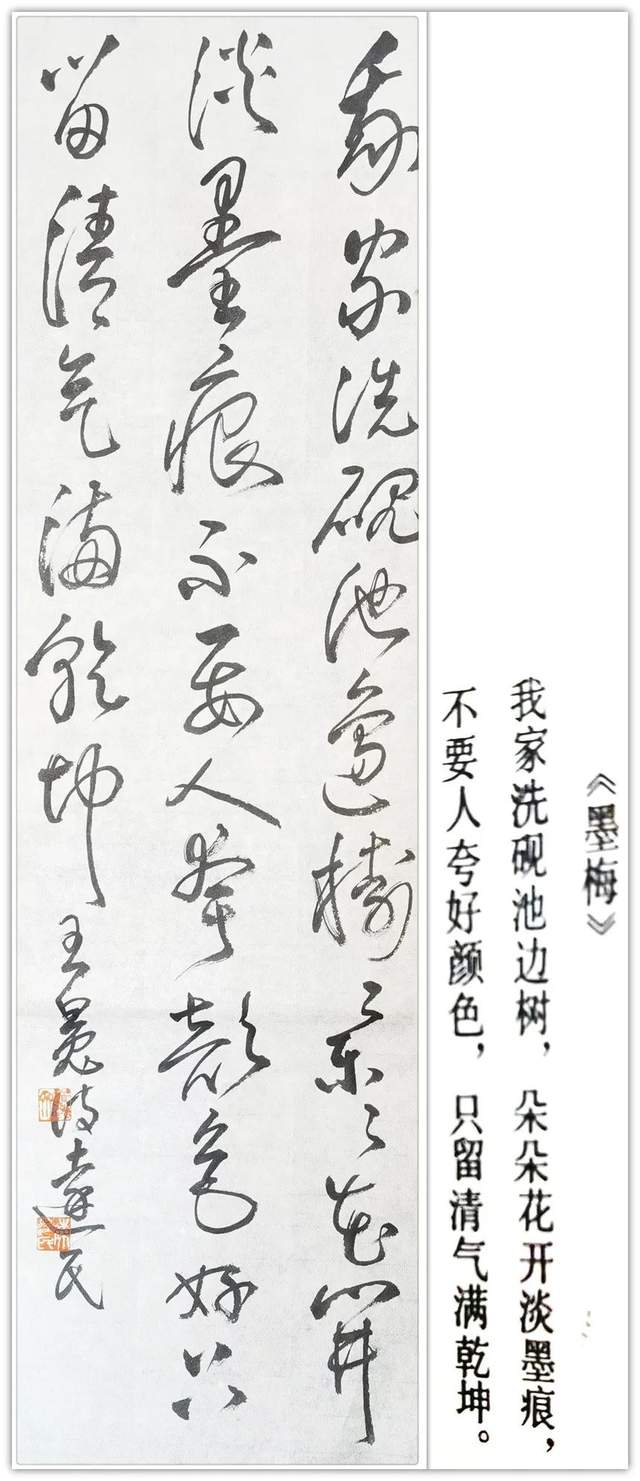 《墨梅》
我家洗砚池边树，朵朵花开淡墨痕，
不要人夸好颜色，只留清气满乾坤。
我家洗硯池邊樹朵々花開
淡墨痕不要人夸颜色好只
留清气满乾坤王冕诗達民